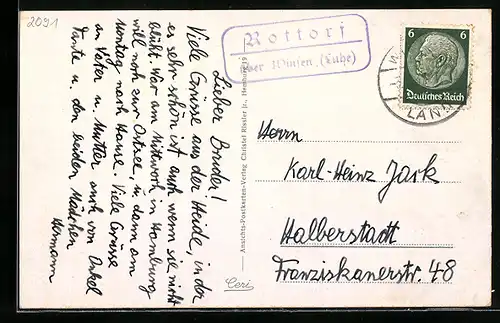 2091
Rottorf
über Winsen (Luhe)
6 6
Deutsches Reich
Lieber Bruder!
Viele Grüsse aus der Heide, in der
es sehr schön ist auch wenn sie nicht
blüht. War am Mittwoch in Hamburg
will noch zur Ostsee, u. dann am
Montag nach Hause. Viele Grüsse
an Vater u. Mutter auch von Onkel
Tante u. den beiden Mädchen
Hermann
Ansichts-Postkarten-Verlag Christel Rissler jr., Hamburg 19
Ceri
Herrn
Karl-Heinz Jark
Halberstadt
Franziskanerstr. 48